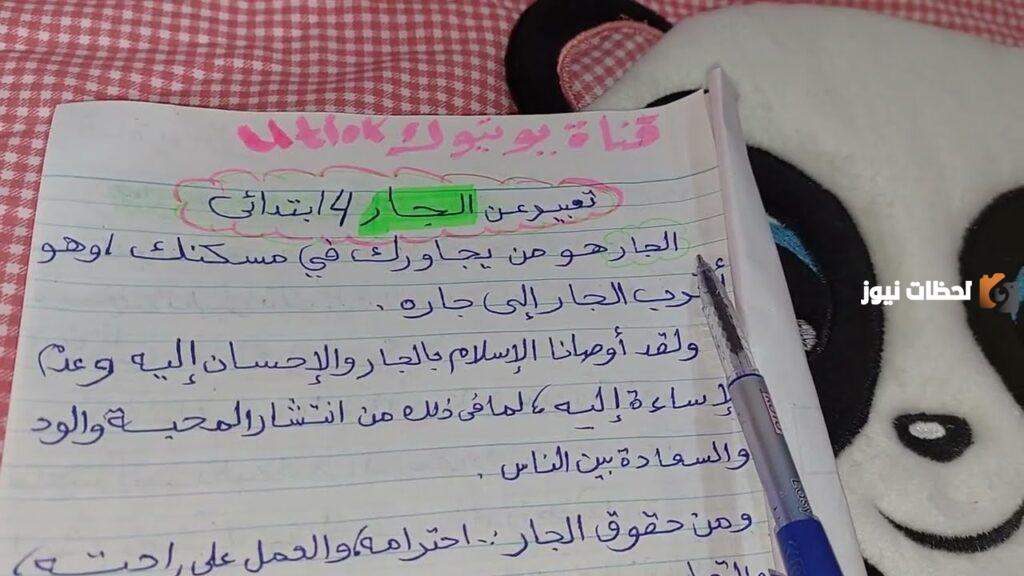 قناة يوتيوك Utlok
تعبير عن الجار 4 ابتدائى
الجار هو من يجاورك في مسكنك ، وهو
أقرب الجار إلى جاره .
ولقد أوصانا الإسلام بالجار والإحسان إليه وعدم
لإساءة إليه ، لما فى ذلك من انتشار المحبة والود
والسعادة بين الناس .
ومن حقوق الجار :. احترامه، والعمل على راحته ،
لحظات نيوز